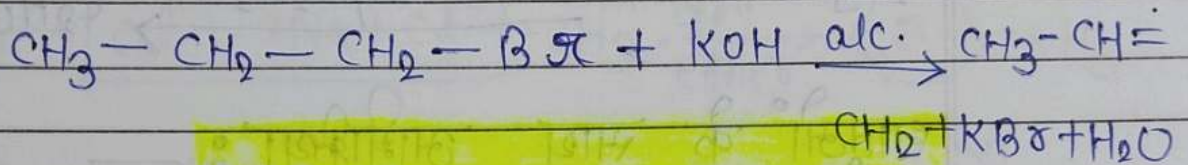 CH₃ — CH₂ — CH₂ — Br + KOH alc.→ CH₃-CH=
CH₂ + KBr + H₂O